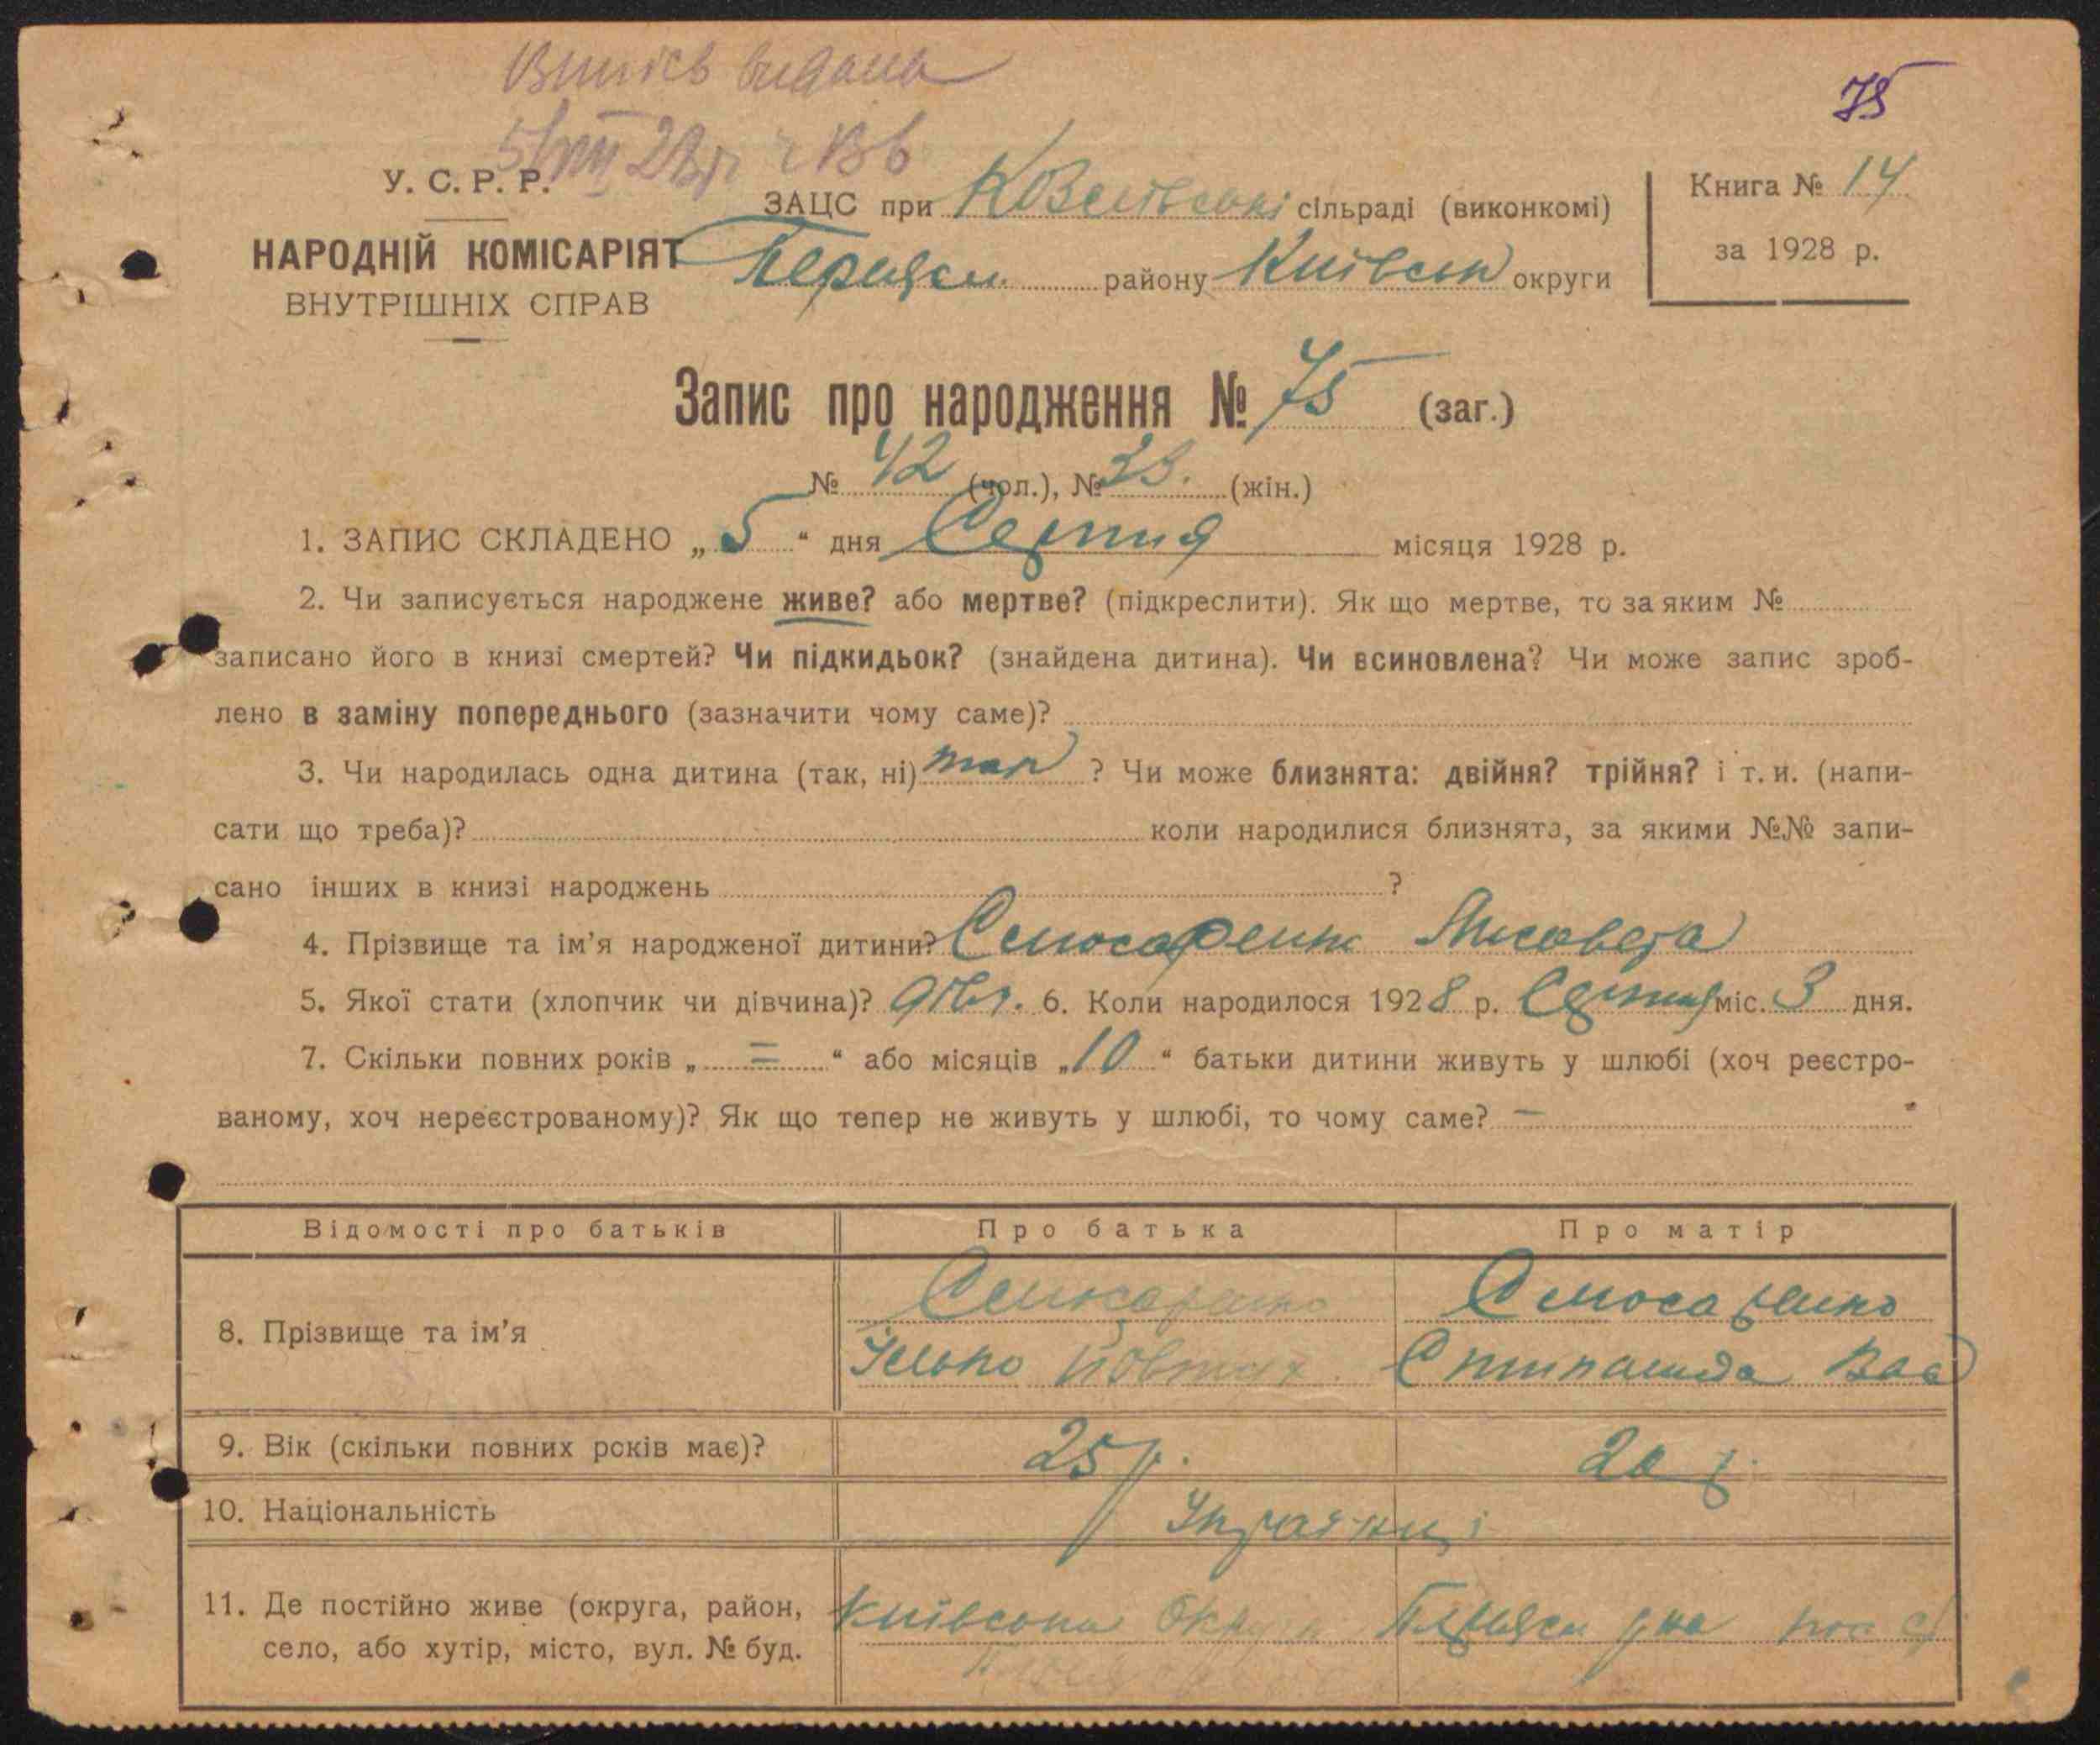 Випись видана
75
5/VIII 28 р.
У. С. Р. Р.
ЗАЦС при Козлівські сільраді (виконкомі)
Книга № 14
НАРОДНІЙ КОМІСАРІЯТ
району Київськ округи
за 1928 р.
ВНУТРІШНІХ СПРАВ
Запис про народження № 75 (заг.)
№ 42 (чол.), № 33. (жін.)
1. ЗАПИС СКЛАДЕНО „ 5 “ дня Серпня місяця 1928 р.
2. Чи записується народжене живе? або мертве? (підкреслити). Як що мертве, то за яким №
записано його в книзі смертей? Чи підкидьок? (знайдена дитина). Чи всиновлена? Чи може запис зроб-
лено в заміну попереднього (зазначити чому саме)?
3. Чи народилась одна дитина (так, ні) так ? Чи може близнята: двійня? трійня? і т. и. (напи-
сати що треба)? коли народилися близнята, за якими №№ запи-
сано інших в книзі народжень ?
4. Прізвище та ім’я народженої дитини? Слюсаренко Лисовета
5. Якої стати (хлопчик чи дівчина)? дівч. 6. Коли народилося 1928 р. Серпня міс. 3 дня.
7. Скільки повних років „ = “ або місяців „ 10 “ батьки дитини живуть у шлюбі (хоч реєстро-
ваному, хоч нереєстрованому)? Як що тепер не живуть у шлюбі, то чому саме? —
Відомості про батьків Про батька Про матір
8. Прізвище та ім’я Слюсаренко Слюсаренко
Ілько Йовтух. Степанида Вас
9. Вік (скільки повних років має)? 25 р. 20 р.
10. Національність Українці
11. Де постійно живе (округа, район, Київська Округа
село, або хутір, місто, вул. № буд.